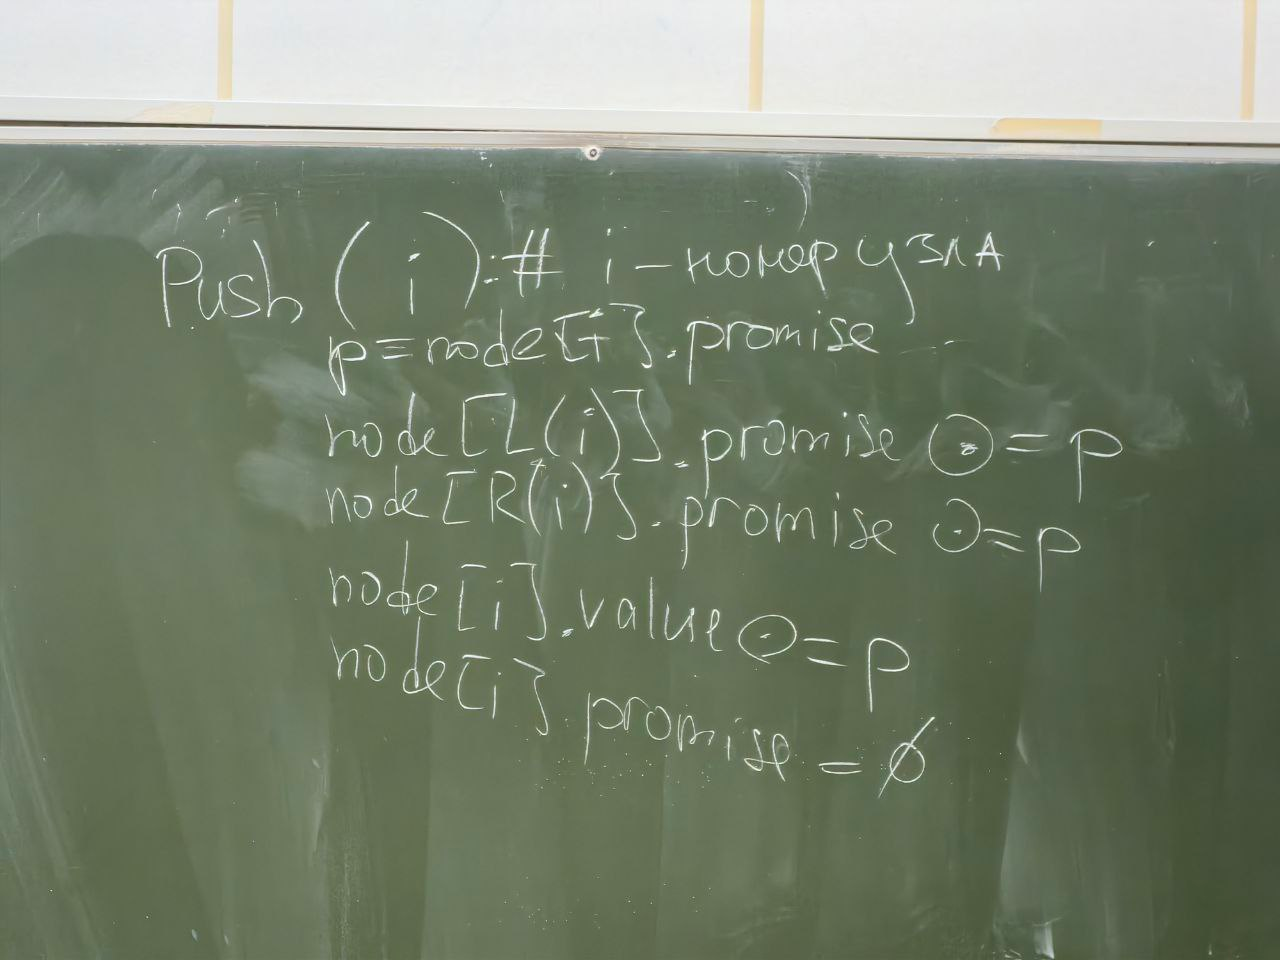 Push (i): # i - номер узла
p = node[i].promise
node[L(i)].promise ⊙= p
node[R(i)].promise ⊙= p
node[i].value ⊙= p
node[i].promise = ∅